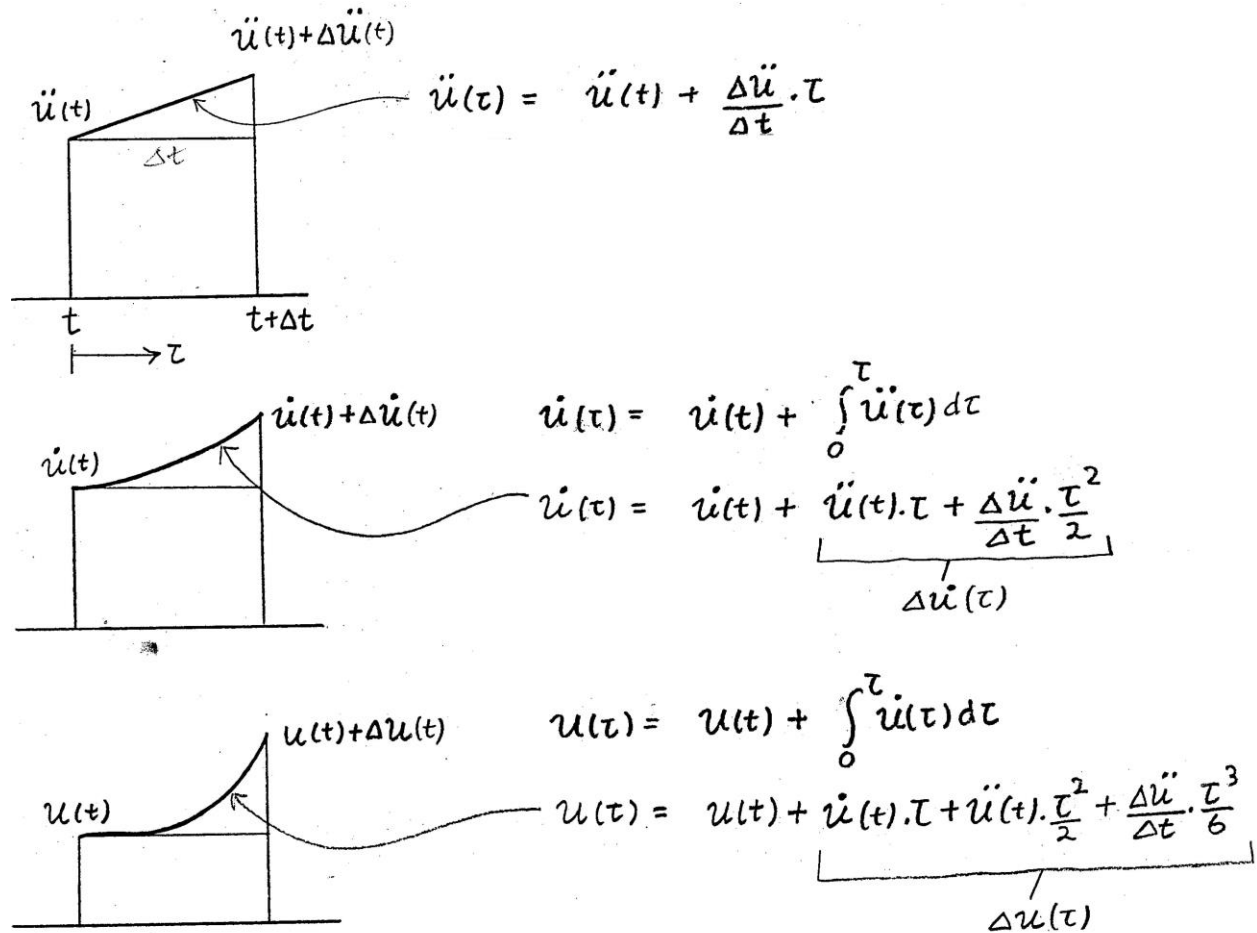 ü(t)+Δü(t)
ü(t)
ü(τ) = ü(t) + Δü/Δt . τ
Δt
t t+Δt
τ
u̇(t)+Δu̇(t)
u̇(t)
u̇(τ) = u̇(t) + ∫₀^τ ü(τ) dτ
u̇(τ) = u̇(t) + ü(t).τ + Δü/Δt . τ²/2
Δu̇(τ)
u(t)+Δu(t)
u(t)
u(τ) = u(t) + ∫₀^τ u̇(τ) dτ
u(τ) = u(t) + u̇(t).τ + ü(t).τ²/2 + Δü/Δt . τ³/6
Δu(τ)